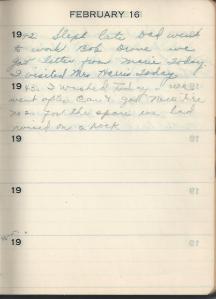 FEBRUARY 16
1942. Slept late, Dad went
to work Bob Drove we
got letter from Marie Today.
I visited Mrs Harris Today.
1943. I washed Today.
went after Can & got Nice Tire
no 2 for the spare we had
ruined on a rock
19
19
19